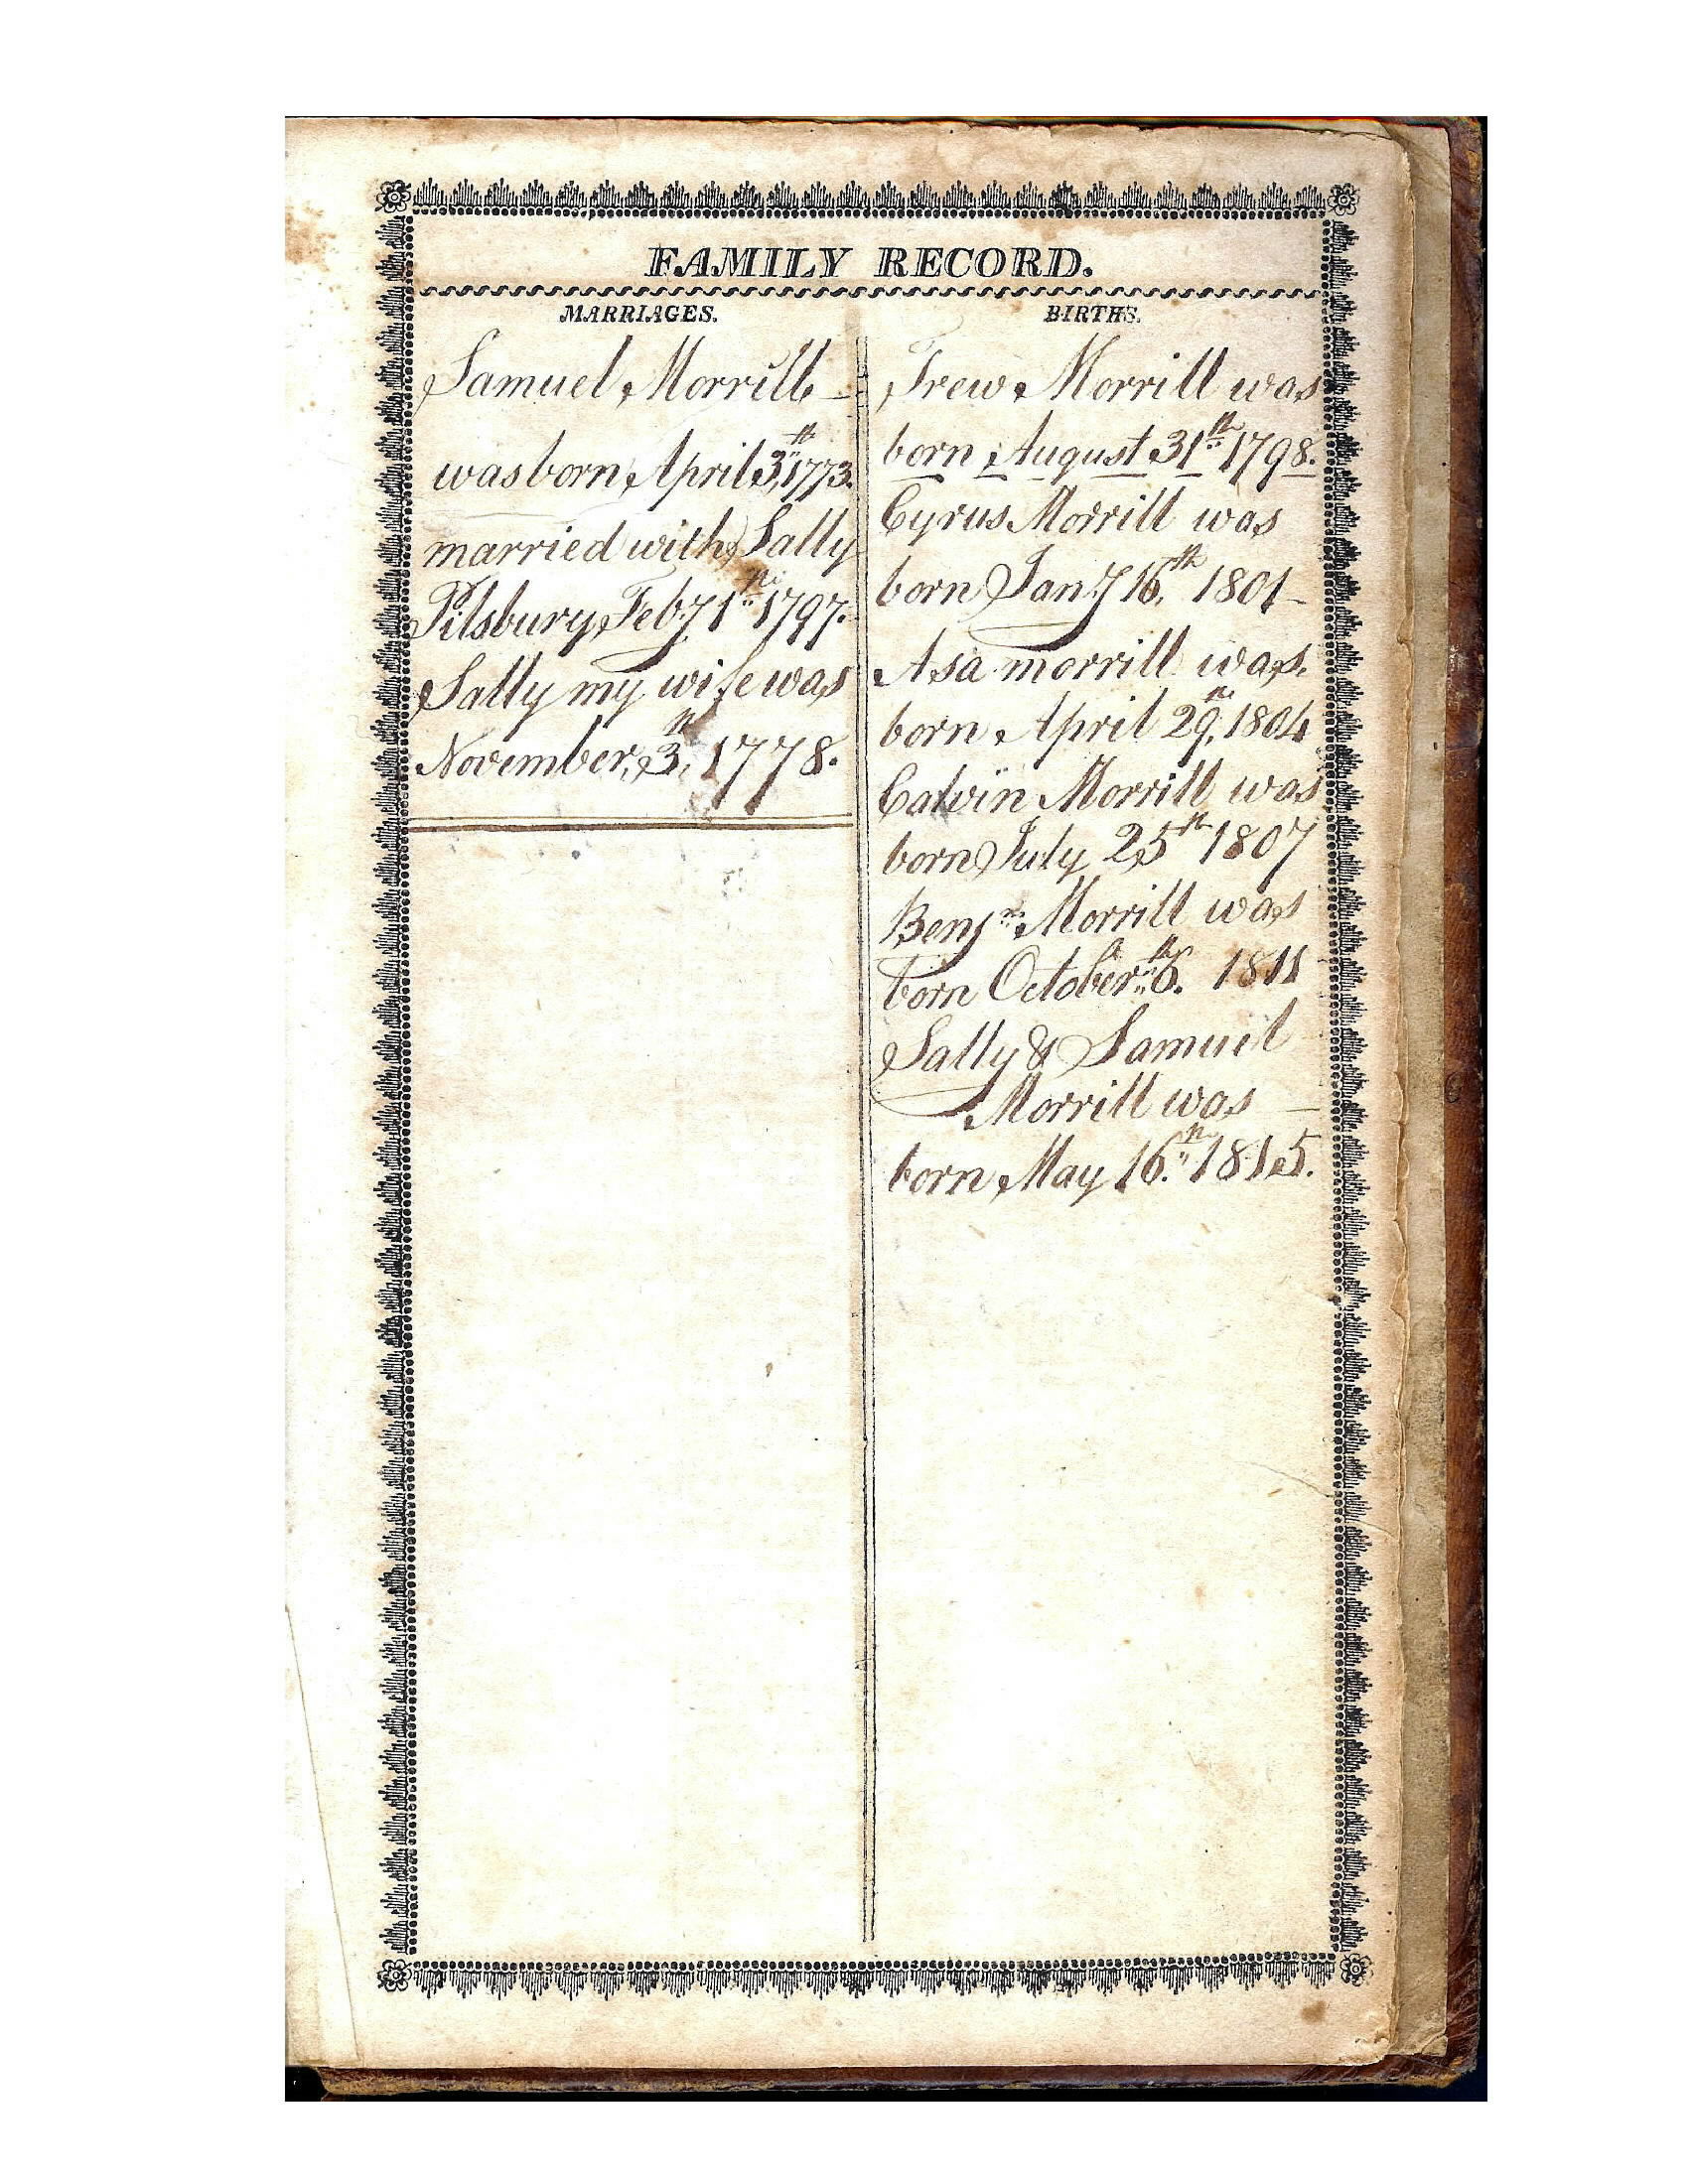 FAMILY RECORD.
MARRIAGES.
Samuel Morrill
was born April 3th 1773.
married with Sally
Pilsbury Feby 1th 1797.
Sally my wife was
November, 3th, 1778.
BIRTHS.
Trew Morrill was
born August 31th 1798.
Cyrus Morrill was
born Jany 16th 1801
Asa morrill was
born April 29th, 1804
Calvin Morrill was
born July 25th 1807
Benjn Morrill was
born October 6th. 1811
Sally & Samuel
Morrill was
born May 16th. 1815.